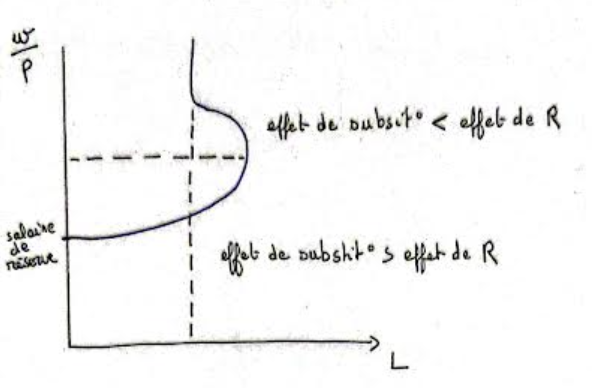 w
P
effet de subsit° < effet de R
salaire
de
réserve
effet de substit° > effet de R
L